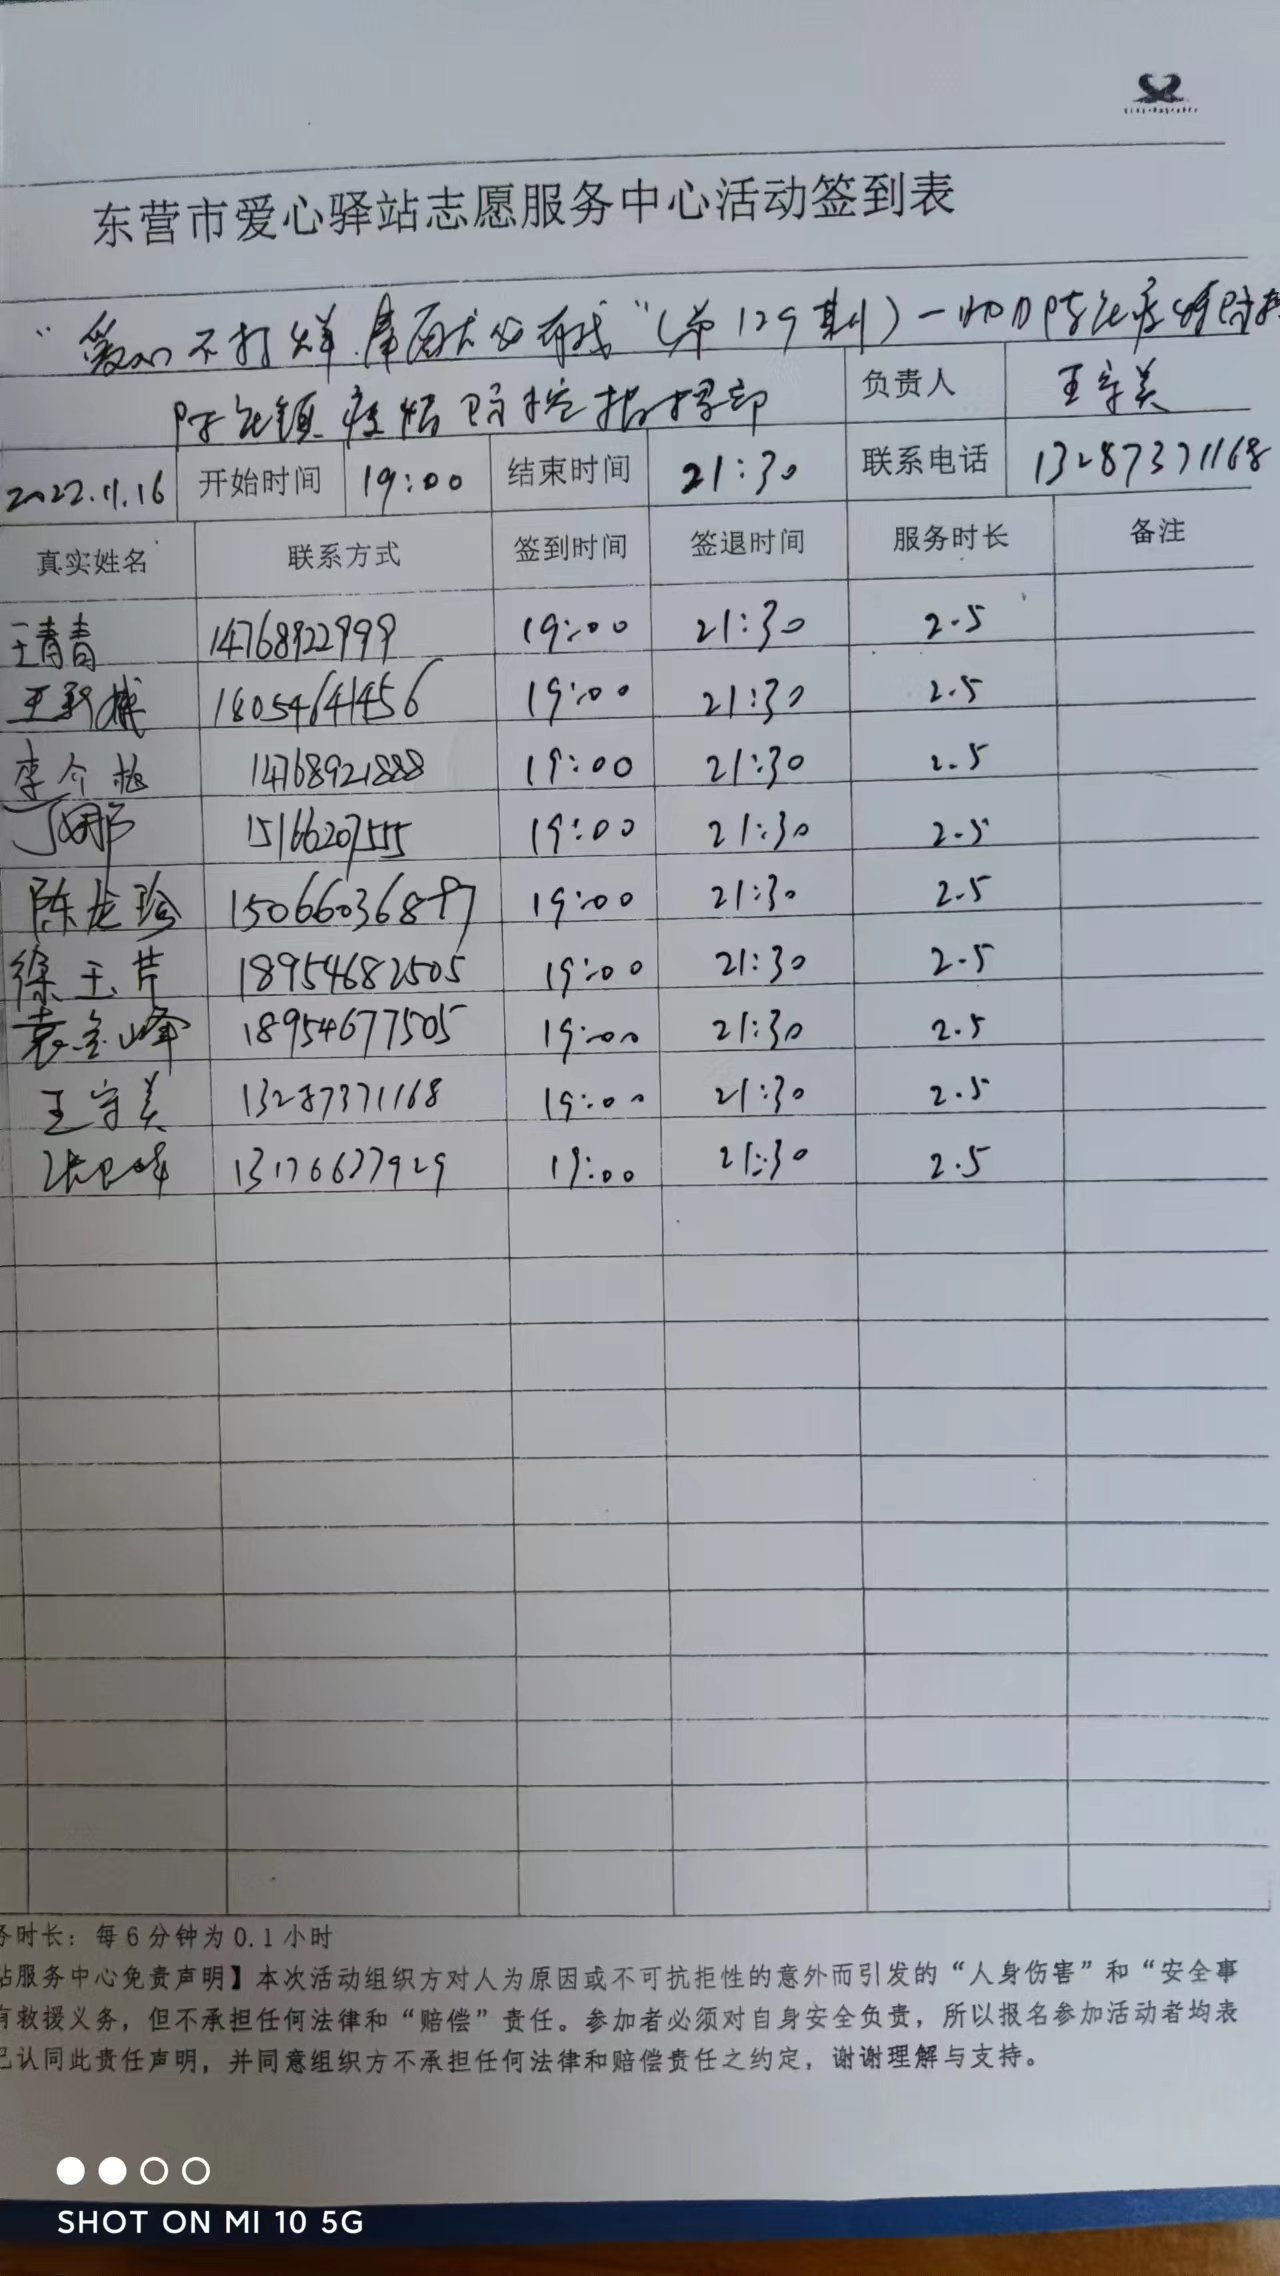 东营市爱心驿站志愿服务中心活动签到表
“爱心不打烊 奉献 有我”(第129期)—协助陈庄疫情防控
陈庄镇疫情防控指挥部 负责人 王守美
2022.11.16 开始时间 19:00 结束时间 21:30 联系电话 13287371168
真实姓名 联系方式 签到时间 签退时间 服务时长 备注
王青青 14768922999 19:00 21:30 2.5
王 18054641456 19:00 21:30 2.5
李 梅 14768921888 19:00 21:30 2.5
娜 15166207555 19:00 21:30 2.5
陈龙珍 19:00 21:30 2.5
徐玉芹 18954682505 19:00 21:30 2.5
袁金峰 18954677505 19:00 21:30 2.5
王守美 13287371168 19:00 21:30 2.5
张 峰 13176677929 19:00 21:30 2.5
务时长：每6分钟为0.1小时
站服务中心免责声明】本次活动组织方对人为原因或不可抗拒性的意外而引发的“人身伤害”和“安全事
有救援义务，但不承担任何法律和“赔偿”责任。参加者必须对自身安全负责，所以报名参加活动者均表
已认同此责任声明，并同意组织方不承担任何法律和赔偿责任之约定，谢谢理解与支持。
SHOT ON MI 10 5G